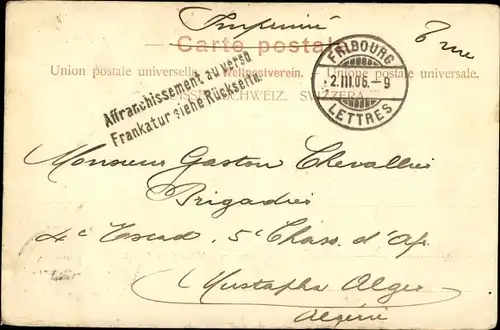 Imprimé
Carte postale
FRIBOURG
2.III.06.-9
LETTRES
Union postale universelle. Weltpostverein. Unione postale universale.
SUISSE. SCHWEIZ. SVIZZERA.
Affranchissement au verso
Frankatur siehe Rückseite.
Monsieur Gaston Chevallier
Brigadier
4e Escad. 5e Chass. d'Af.
Mustapha Alger
Algérie